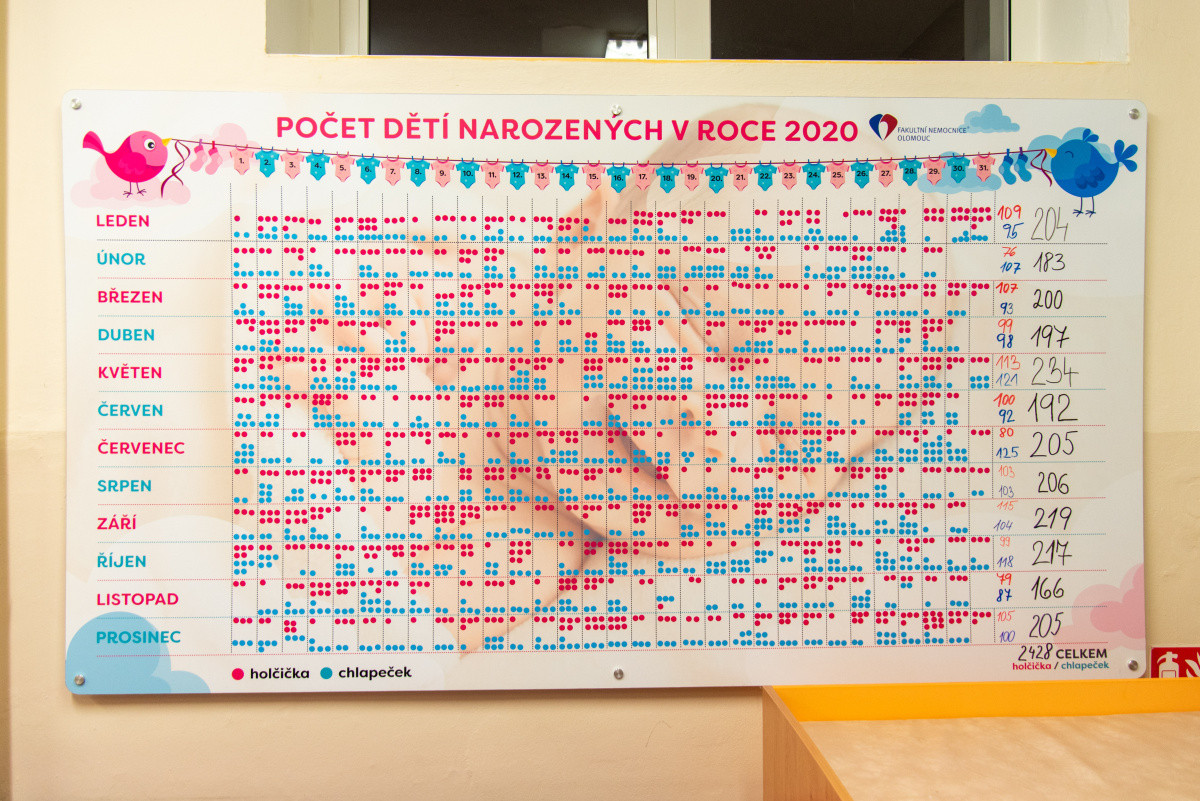 POČET DĚTÍ NAROZENÝCH V ROCE 2020
FAKULTNÍ NEMOCNICE
OLOMOUC
1. 2. 3. 4. 5. 6. 7. 8. 9. 10. 11. 12. 13. 14. 15. 16. 17. 18. 19. 20. 21. 22. 23. 24. 25. 26. 27. 28. 29. 30. 31.
LEDEN 109 95 204
ÚNOR 76 107 183
BŘEZEN 107 93 200
DUBEN 99 98 197
KVĚTEN 113 121 234
ČERVEN 100 92 192
ČERVENEC 80 125 205
SRPEN 103 103 206
ZÁŘÍ 115 104 219
ŘÍJEN 99 118 217
LISTOPAD 79 87 166
PROSINEC 105 100 205
2428 CELKEM
holčička chlapeček holčička / chlapeček